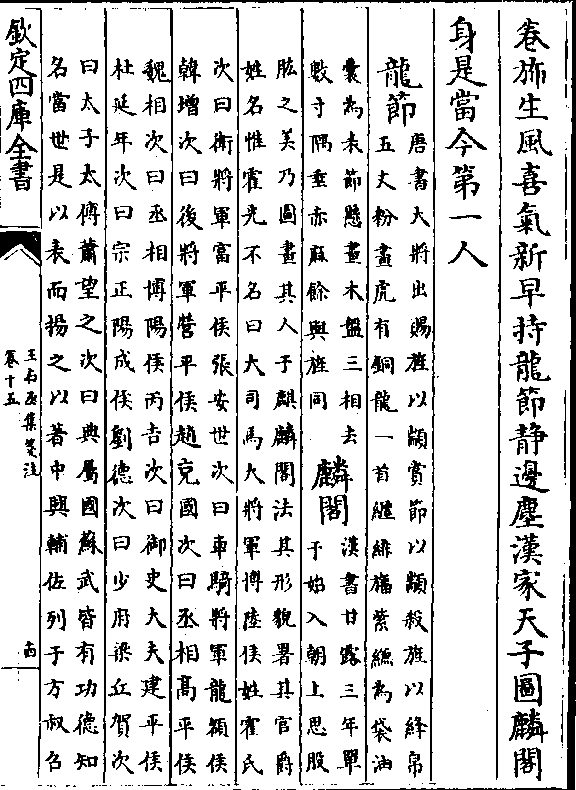 卷斾生風喜氣新早持龍節静邊塵漢家天子圖麟閣
身是當今第一人
龍節
唐書大將出賜旌以顓賞節以顓殺旌以絳帛
五丈粉畫虎有銅龍一首纏緋旛紫縑為袋油
囊為表節懸畫木盤三相去
數寸隅垂赤麻餘與旌同
麟閣
漢書甘露三年單
于始入朝上思股
肱之美乃圖畫其人于麒麟閣法其形貌署其官爵
姓名惟霍光不名曰大司馬大將軍博陸侯姓霍氏
次曰衛將軍富平侯張安世次曰車騎將軍龍頟侯
韓增次曰後將軍營平侯趙充國次曰丞相高平侯
魏相次曰丞相博陽侯丙吉次曰御史大夫建平侯
杜延年次曰宗正陽成侯劉德次曰少府梁丘賀次
曰太子太傅蕭望之次曰典屬國蘇武皆有功德知
名當世是以表而揚之以著中興輔佐列于方叔召
欽定四庫全書
王右丞集箋注
卷十五